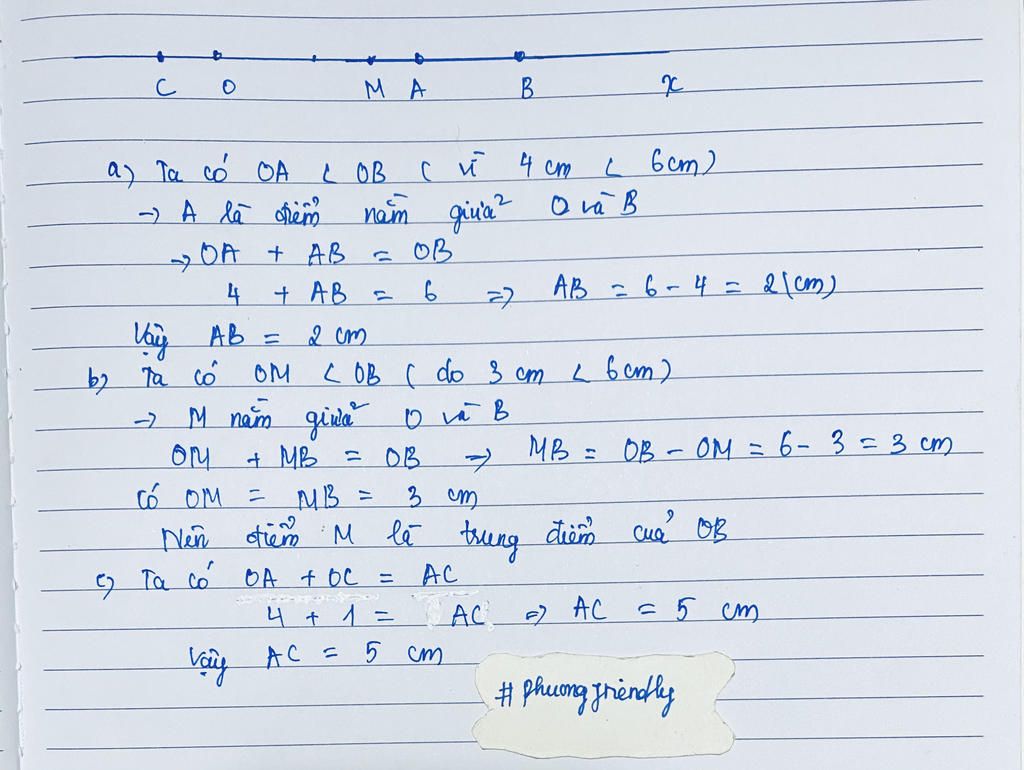 C O M A B x
a) Ta có OA < OB ( vì 4 cm < 6cm)
→ A là điểm nằm giữa O và B
→ OA + AB = OB
4 + AB = 6 => AB = 6 - 4 = 2 (cm)
Vậy AB = 2 cm
b) Ta có OM < OB ( do 3 cm < 6cm)
→ M nằm giữa O và B
OM + MB = OB → MB = OB - OM = 6 - 3 = 3 cm
có OM = MB = 3 cm
Nên điểm M là trung điểm của OB
c) Ta có OA + OC = AC
4 + 1 = AC => AC = 5 cm
Vậy AC = 5 cm
# phuongfriendly